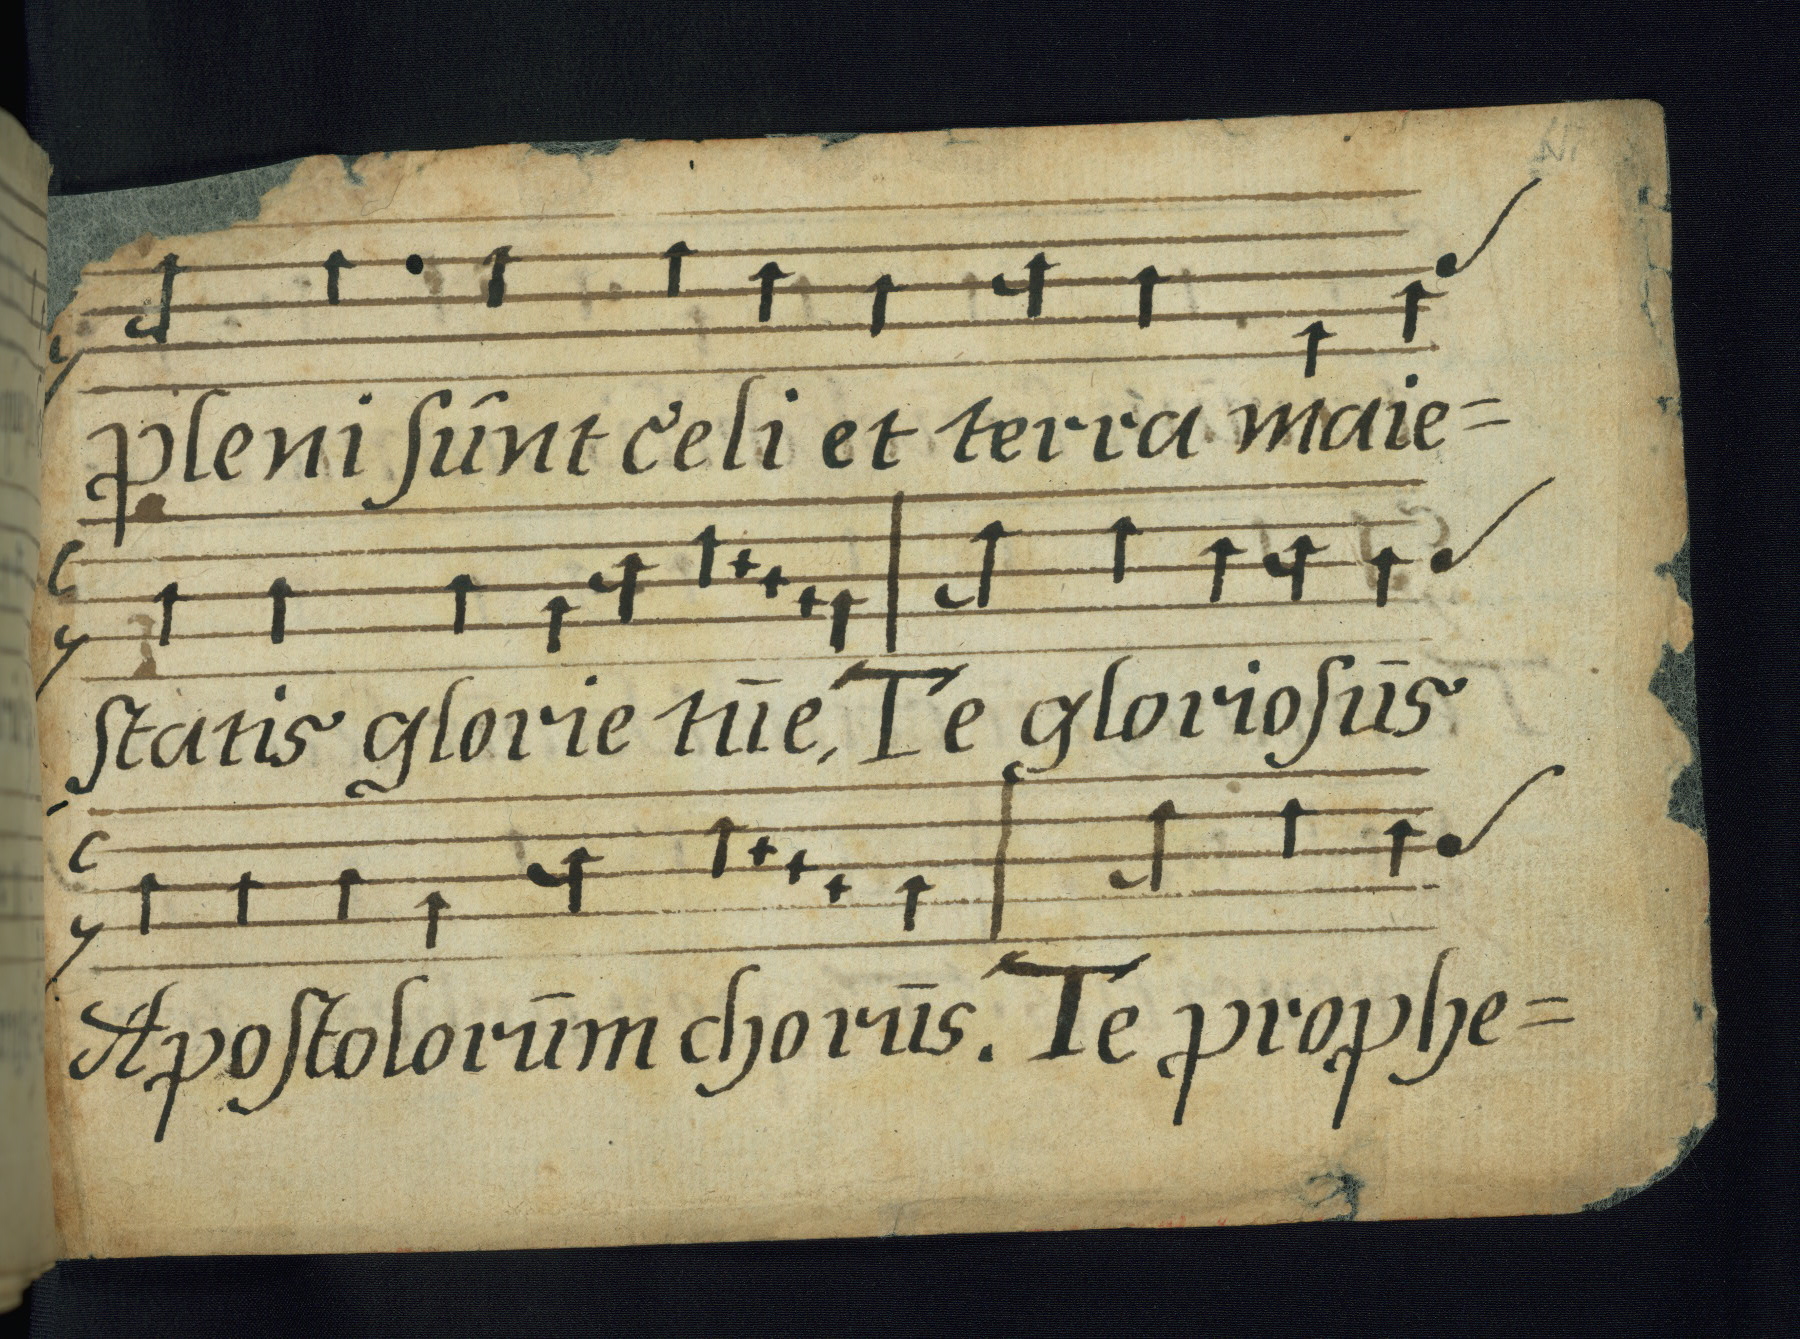 pleni sûnt čeli et terra maie=
statis glorie tūe, Te gloriosūs
Apostolorūm chorūs. Te prophe=